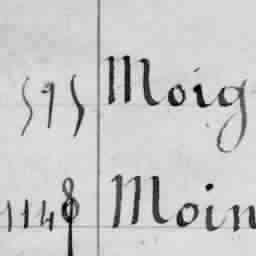 595 Moig
1148 Moin